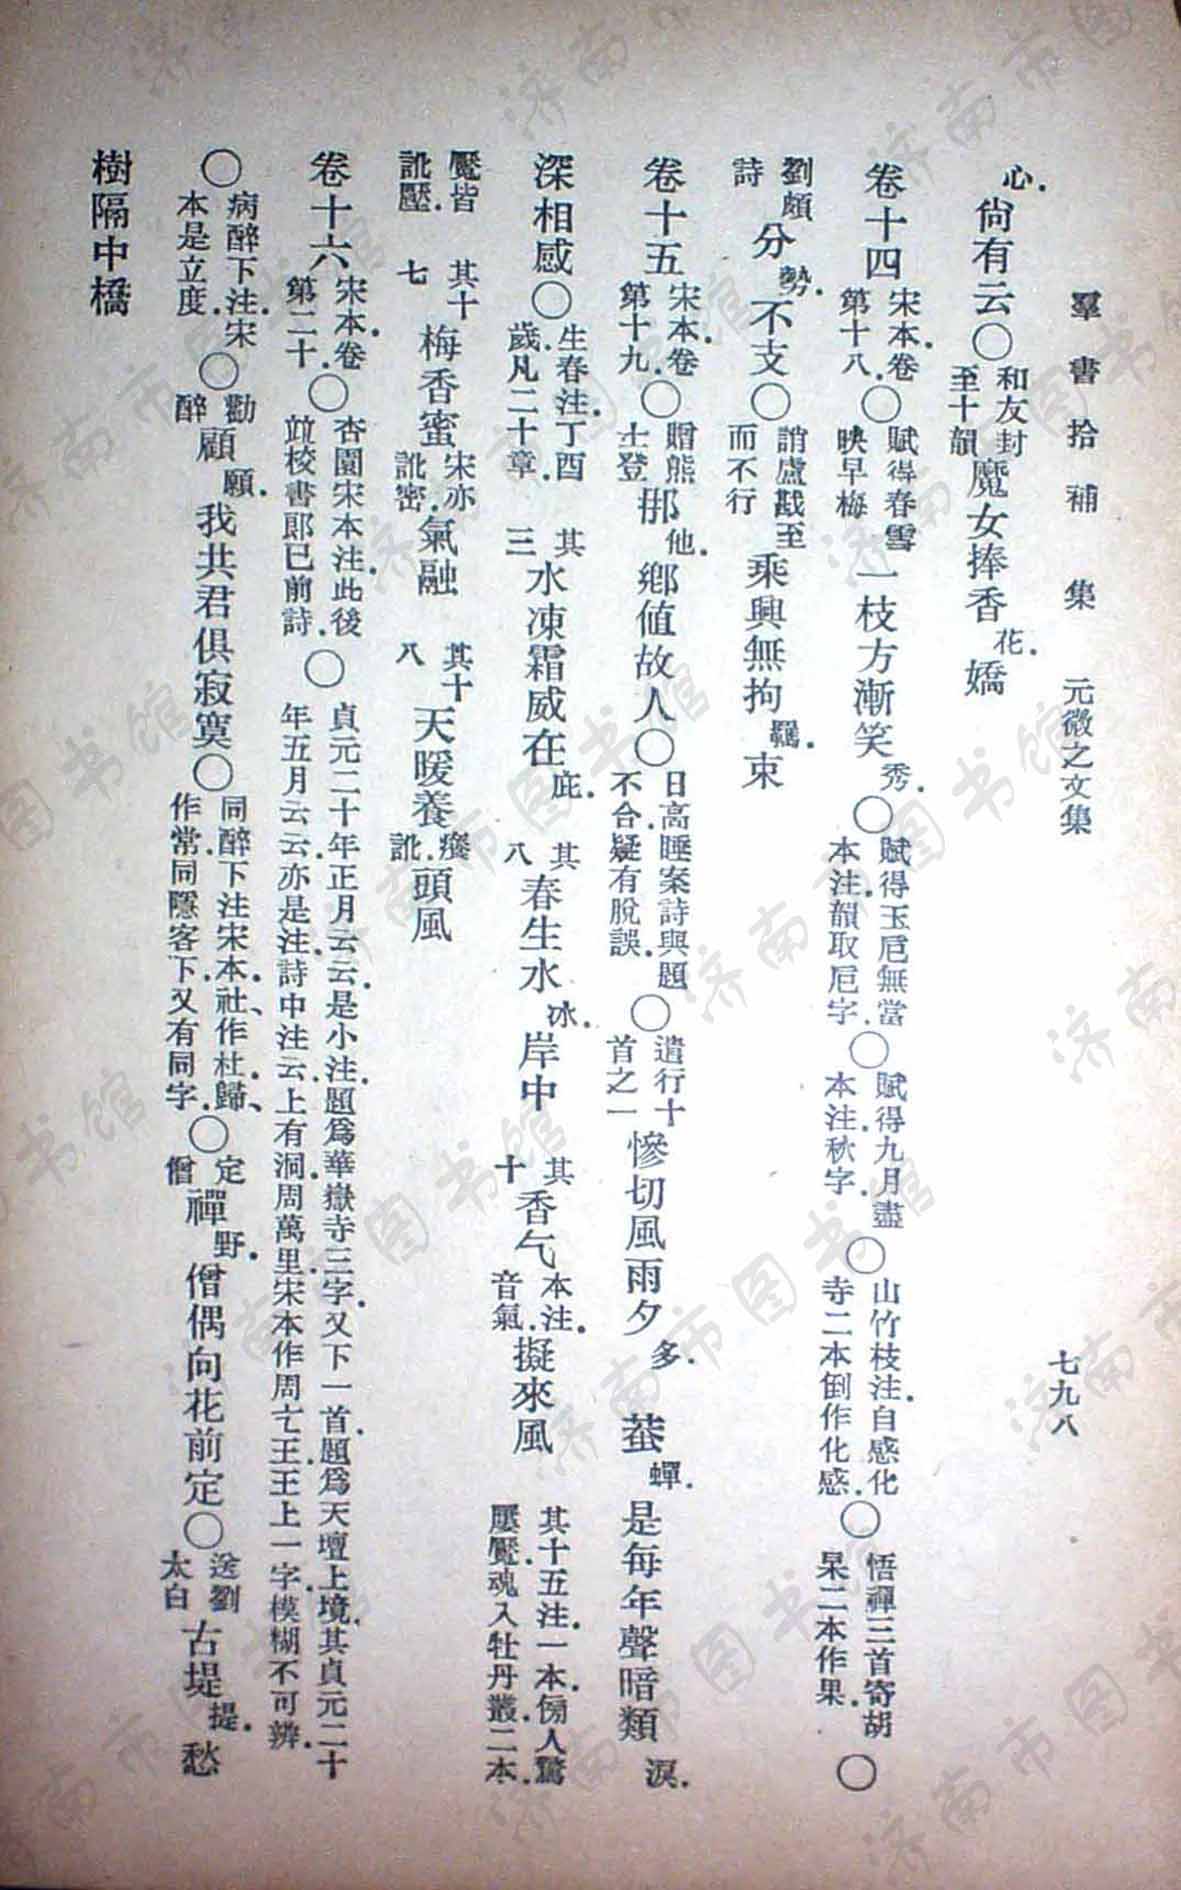 羣書拾補 集 元微之文集 七九八
心．尙有云○和友封至十韻魔女捧香花．嬌
卷十四宋本．卷第十八．○賦得春雪映早梅一枝方漸笑秀．○賦得玉卮無當本注．韻取卮字．○賦得九月盡本注．秋字．○山竹枝注．自感化寺二本倒作化感．○悟禪三首寄胡杲二本作果．○
劉頗詩分勢．不支○誚盧戡至而不行乘興無拘羈．束
卷十五宋本．卷第十九．○贈熊士登𨚗他．鄉值故人○日高睡案詩與題不合．疑有脫誤．○遣行十首之一慘切風雨夕多．蛬蟬．是每年聲暗類淚．
深相感○生春注．丁酉歲．凡二十章．其三水凍霜威在庇．其八春生水冰．岸中其十香气本注．音氣．擬來風其十五注．一本．傍人驚屢魘．魂入牡丹叢．二本．
魘皆訛壓．其十七梅香蜜宋亦訛密．氣融其十八天暖養癢．訛．頭風
卷十六宋本．卷第二十．○杏園宋本注．此後竝校書郎已前詩．○貞元二十年正月云云．是小注．題爲華嶽寺三字．又下一首．題爲天壇上境．其貞元二十年五月云云．亦是注．詩中注云．上有洞．周萬里．宋本作周亡王．王上一字．模糊不可辨．
○病醉下注．宋本是立度．○勸醉顧願．我共君俱寂寞○同醉下注宋本．社作杜．歸、作常．同隱客下．又有同字．○定僧禪野．僧偶向花前定○送劉太白古堤提．愁
樹隔中橋
济南市图书馆